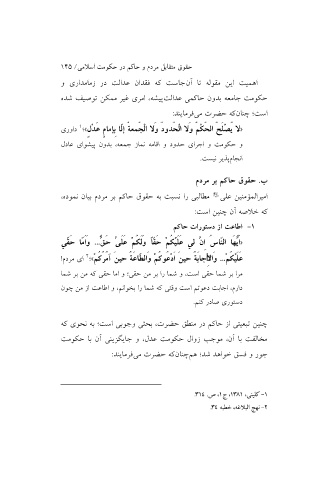 حقوق متقابل مردم و حاکم در حکومت اسلامی/ ۱۴۵
اهمیت این مقوله تا آن‌جاست که فقدان عدالت در زمامداری و
حکومت جامعه بدون حاکمی عدالت‌پیشه، امری غیر ممکن توصیف شده
است؛ چنان‌که حضرت می‌فرمایند:
«لا یَصْلُحُ الحُکْمُ وَ لا الْحُدودُ وَ لا الْجُمعةُ إلّا بِإمامٍ عَدْلٍ»؛۱ داوری
و حکومت و اجرای حدود و اقامه نماز جمعه، بدون پیشوای عادل
انجام‌پذیر نیست.
ب. حقوق حاکم بر مردم
امیرالمؤمنین علی مطالبی را نسبت به حقوق حاکم بر مردم بیان نموده،
که خلاصه آن چنین است:
۱- اطاعت از دستورات حاکم
«أیُّهَا النّاسُ إنَّ لِي عَلَیْکُمْ حَقّاً وَلَکُمْ عَلَيَّ حَقٌّ... وَأمّا حَقّي
عَلَیْکُمْ... وَالْأجابَةُ حینَ أدْعُوکُمْ وَالطّاعَةُ حینَ آمُرُکُمْ»؛۲ ای مردم!
مرا بر شما حقی است، و شما را بر من حقی؛ و اما حقی که من بر شما
دارم، اجابت دعوتم است وقتی که شما را بخوانم، و اطاعت از من چون
دستوری صادر کنم.
چنین تبعیتی از حاکم در منطق حضرت، بحثی وجوبی است؛ به نحوی که
مخالفت با آن، موجب زوال حکومت عدل، و جایگزینی آن با حکومت
جور و فسق خواهد شد؛ هم‌چنان‌که حضرت می‌فرمایند:
۱- کلینی، ۱۳۸۱، ج۱، ص ۳۱۴.
۲- نهج البلاغه، خطبه ۳۴.